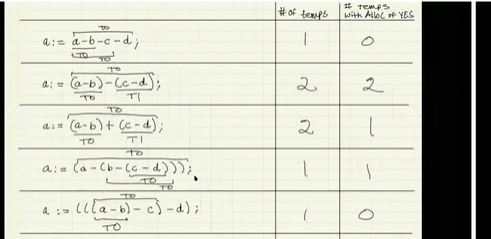 # of temps
# temps
with Alloc of YES
T0
a:= a-b-c-d;
T0
T0
1
0
T0
a:= (a-b)-(c-d);
T0
T1
2
2
T0
a:= (a-b)+(c-d);
T0
T1
2
1
T0
a:= (a-(b-(c-d)));
T0
T0
1
1
T0
a:=(((a-b)-c)-d);
T0
1
0